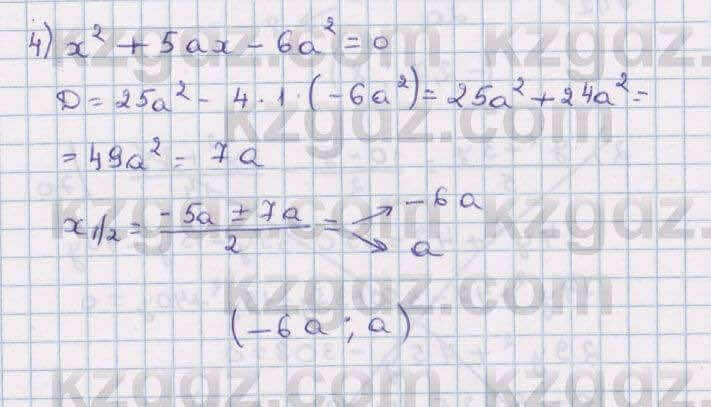 4) x² + 5ax - 6a² = 0
D = 25a² - 4 · 1 · (-6a²) = 25a² + 24a² =
= 49a² = 7a
x₁/₂ = (-5a ± 7a)/2 = -6a
a
(-6a ; a)
kzgdz.com
kzgdz.com
kzgdz.com
kzgdz.com
kzgdz.com